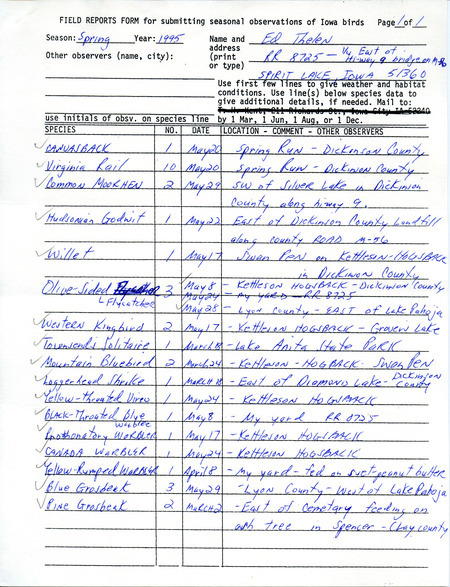 FIELD REPORTS FORM for submitting seasonal observations of Iowa birds Page 1 of 1
Season: Spring Year: 1995 Name and Ed Thelen
Other observers (name, city): address RR 8725 - East of
(print Hi-way 9 bridge on
or type) SPIRIT LAKE, IOWA 51360
Use first few lines to give weather and habitat
conditions. Use line(s) below species data to
give additional details, if needed. Mail to:
T. H. Kent, 211 Richards St., Iowa City IA 52240
use initials of obsv. on species line by 1 Mar, 1 Jun, 1 Aug, or 1 Dec.
SPECIES NO. DATE LOCATION - COMMENT - OTHER OBSERVERS
CANVASBACK 1 May 20 Spring Run - Dickinson County
Virginia Rail 10 May 20 Spring Run - Dickinson County
Common Moorhen 2 May 29 SW of Silver Lake in Dickinson
County along hiway 9.
Hudsonian Godwit 1 May 22 East of Dickinson County Landfill
along county ROAD M-56
Willet 1 May 17 Swan Pen on Kettleson-HOGSBACK
in Dickinson County
Olive-Sided 3 May 8 - Kettleson HOGSBACK - Dickinson County
Flycatcher May 24 - my yard - RR 8725
May 28 - Lyon County - EAST of Lake Pahoja
Western Kingbird 2 May 17 - Kettleson HOGSBACK - Grovers Lake
Townsends Solitaire 1 March 18 - Lake Anita State PARK
Mountain Bluebird 2 March 24 - Kettleson - HOGSBACK - Swan Pen
Loggerhead Shrike 1 March 18 - East of Diamond Lake - Dickinson County
Yellow-Throated Vireo 1 May 24 - Kettleson HOGSBACK
BLACK-Throated blue 1 May 8 - My yard RR 8725
Warbler
Prothonotary WARBLER 1 May 17 - Kettleson HOGSBACK
CANADA WARBLER 1 May 24 - Kettleson HOGSBACK
Yellow-Rumped WARBLER 1 April 8 - my yard - fed on suet-peanut butter
Blue Grosbeak 3 May 29 - Lyon County - West of Lake Pahoja
Pine Grosbeak 2 March 2 - East of Cemetary feeding on
ash tree in Spencer - Clay county